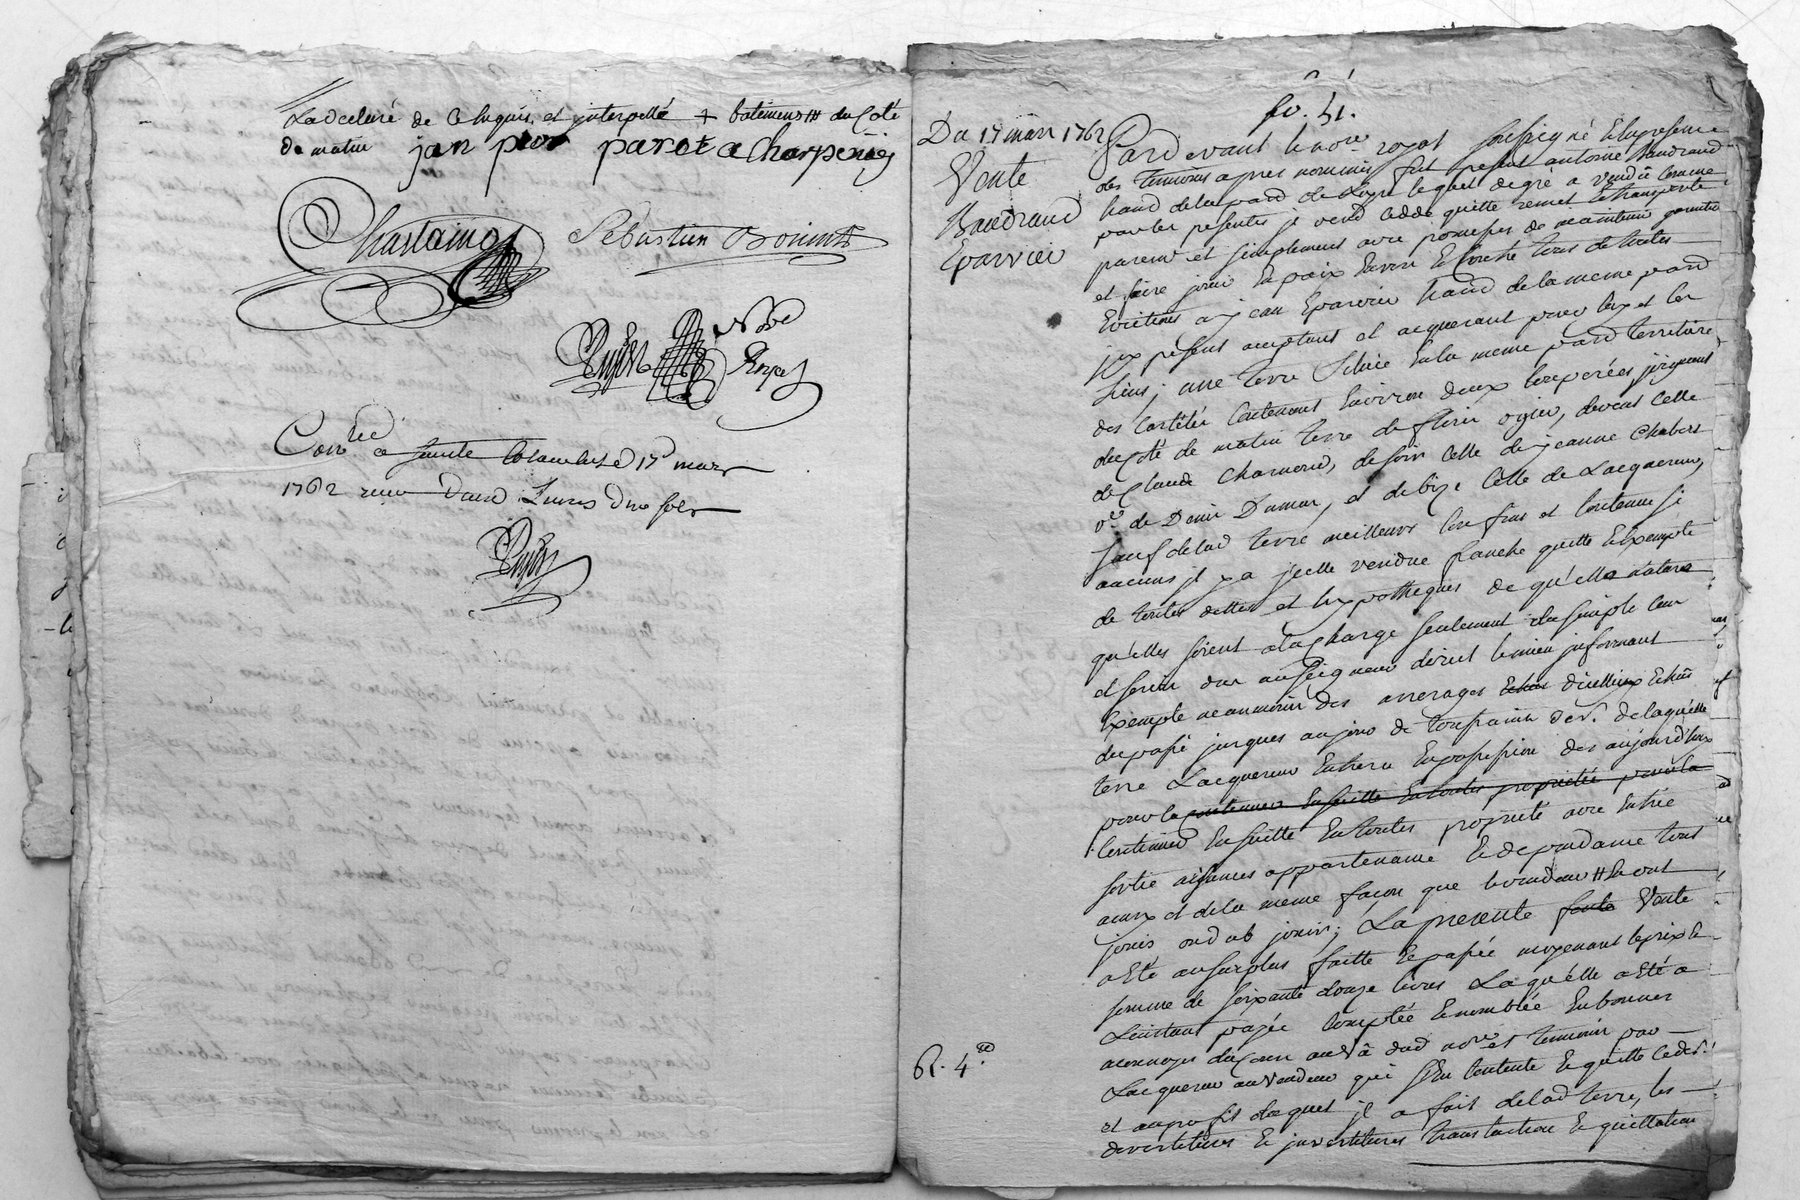 a declaré de ce enquis et interpellé + batiment /// du coté
de matin jan pier parot a Charpeney
Chastaing
Sebastien
Nore
Royal
Con lé a sainte Colombe le 17e mars
1762 receu douze sols
fo. 51.
Du 17 mars 1762
Vente
Baudrand
Eparvier
Pardevant le nore royal soussigné et en presence
des temoins apres nommés fut present antoine Baudrand
hand de la par de lequel de gré a vendu comme
par les presentes il vend cedde quitte remet et transporte
purem et simplement avec promesses de maintenir garentir
et faire jouir en paix envers et contre tous de toutes
evictions a jean Eparvier hand de la meme par
icy present acceptant et acquerant pour luy et les
siens; une terre scituée en la meme par territoire
des contenant environ deux couperées joignant
du coté de matin terre de fleuri ogier, devent celle
de Claude Charmond, de soir celle de jeanne Chabert
ve de Denis Dumas, et de bize celle de Lacquereur,
sauf de lad terre meilleurs confins et contenue si
aucuns il y a icelle vendue franche quitte et exempte
de toutes dettes et hypotheques de qu'elle nature
qu'elles soient a la charge seulement du simple cens
et servis dus au seigneur direct le mieu informant
exempte neanmoins des arrerages echus d'icelluy echus
du passé jusques au jour de toussaint der. de laquelle
terre Lacquereur entrera en possession des aujourd'huy
pour la continuer ensuitte en toutes proprieté pour la
continuer ensuitte en toutes proprieté avec entrée
sortie aisances appartenance et dependance tout
ainsy et de la meme façon que le vendeur # en ont
jouis ou dub jouir; La presente faite Vente
a eté au surplus faitte et passée moyenant le prix et
somme de soixante douze livres Laquelle a eté a
Linstant payée comptée et nombrée en bonnes
monnoyes du cour au vû dud nore et temoins par
Lacquereur au vendeur qui s'en contente et quitte led.
et au profit duquel il a fait de lad terre, les
devestitures et investitures translaction et quittation
61. 4.